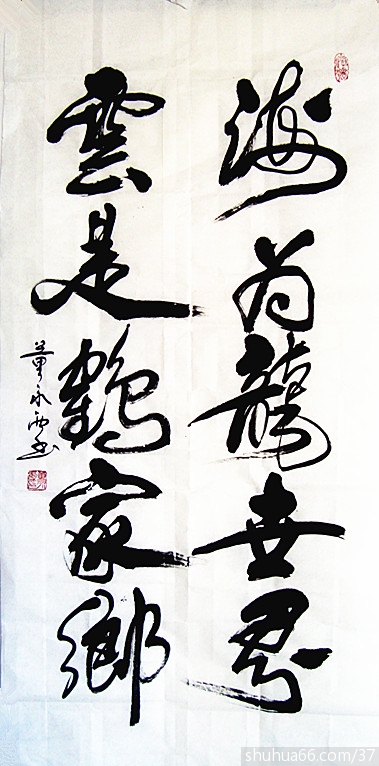 海为龍世界
雲是鶴家鄉
董永西书
shuhua66.com/37